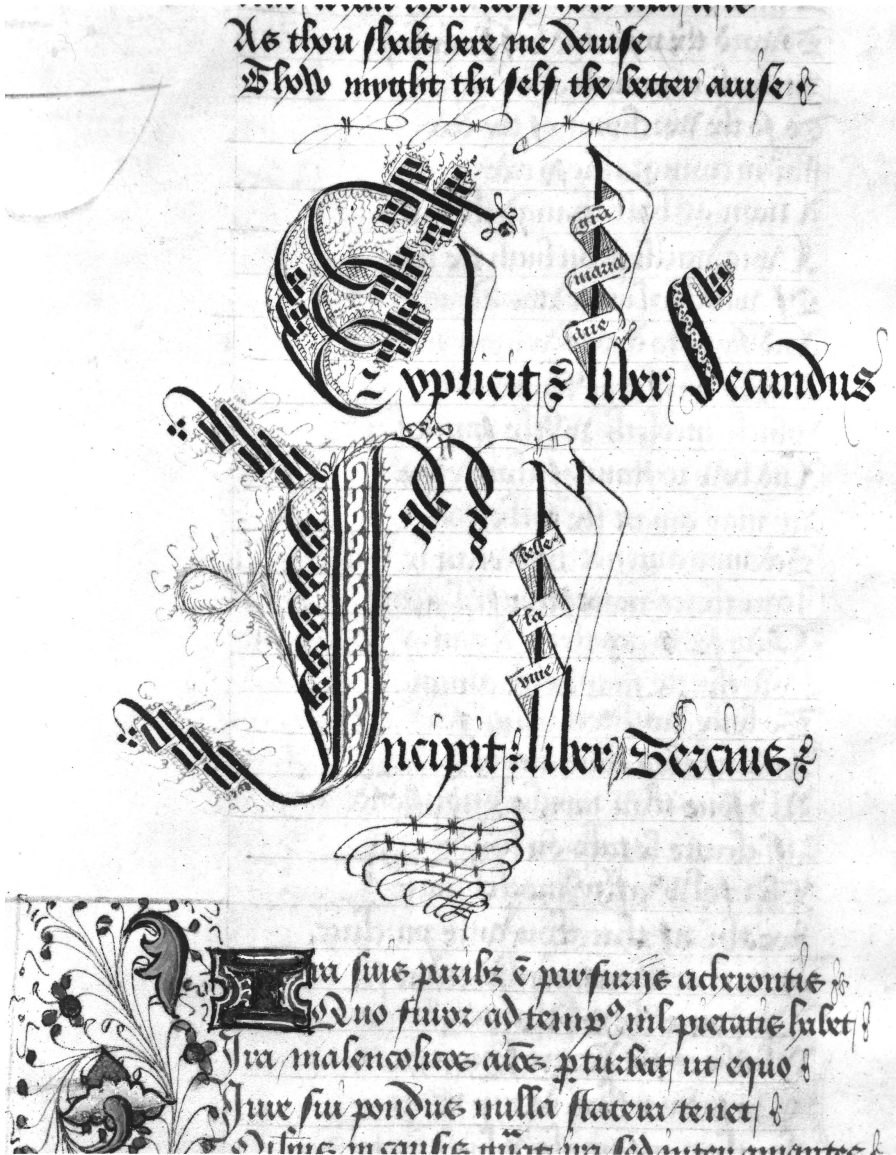 As thou shalt here me deuise
Thow myght thi self the better auise
gra
maria
aue
Explicit liber Secundus
belle
la
viue
Incipit liber Tercius
Ira suis paribȝ ē par furijs acherontis
Quo furor ad tempꝰ nil pietatis habet
Ira malencolicos aīos ꝑturbat ut equo
Iure sui pondus nulla statera tenet
in causis ira sed inter amantes